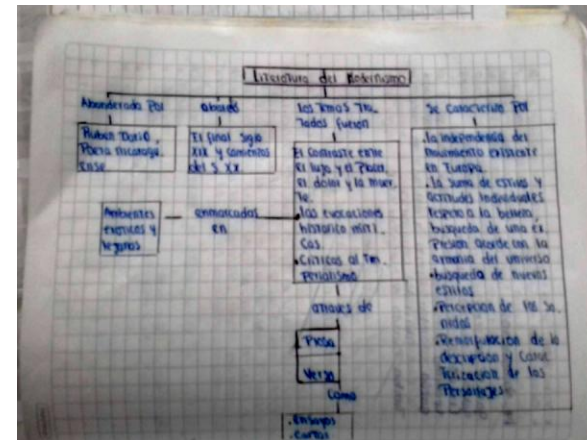 Literatura del Modernismo
Abanderado Por
Rubén Darío,
Poeta nicaragu
ense
abordó
El final siglo
XIX y comienzos
del S. XX
los Temas Tra
Tados fueron
El Contraste entre
El lujo y el Placer,
El dolor y la muer
Te.
•las evocaciones
historico miti
Cas.
•Criticas al Im
Perialismo
enmarcadas
en
Ambientes
exoticos y
lejanos
atraves de
Prosa
Verso
Como
.Ensayos
.Cartas
Se Caracterizó Por
.la independencia del
Movimiento existente
en Europa.
•la Suma de estilos y
actitudes individuales
respeto a la belleza,
busqueda de una ex
Presión acorde con la
armonia del universo
•busqueda de nuevos
estilos
•Percepción de los So
nidos
descripción y Carac
Terización de los
Personajes